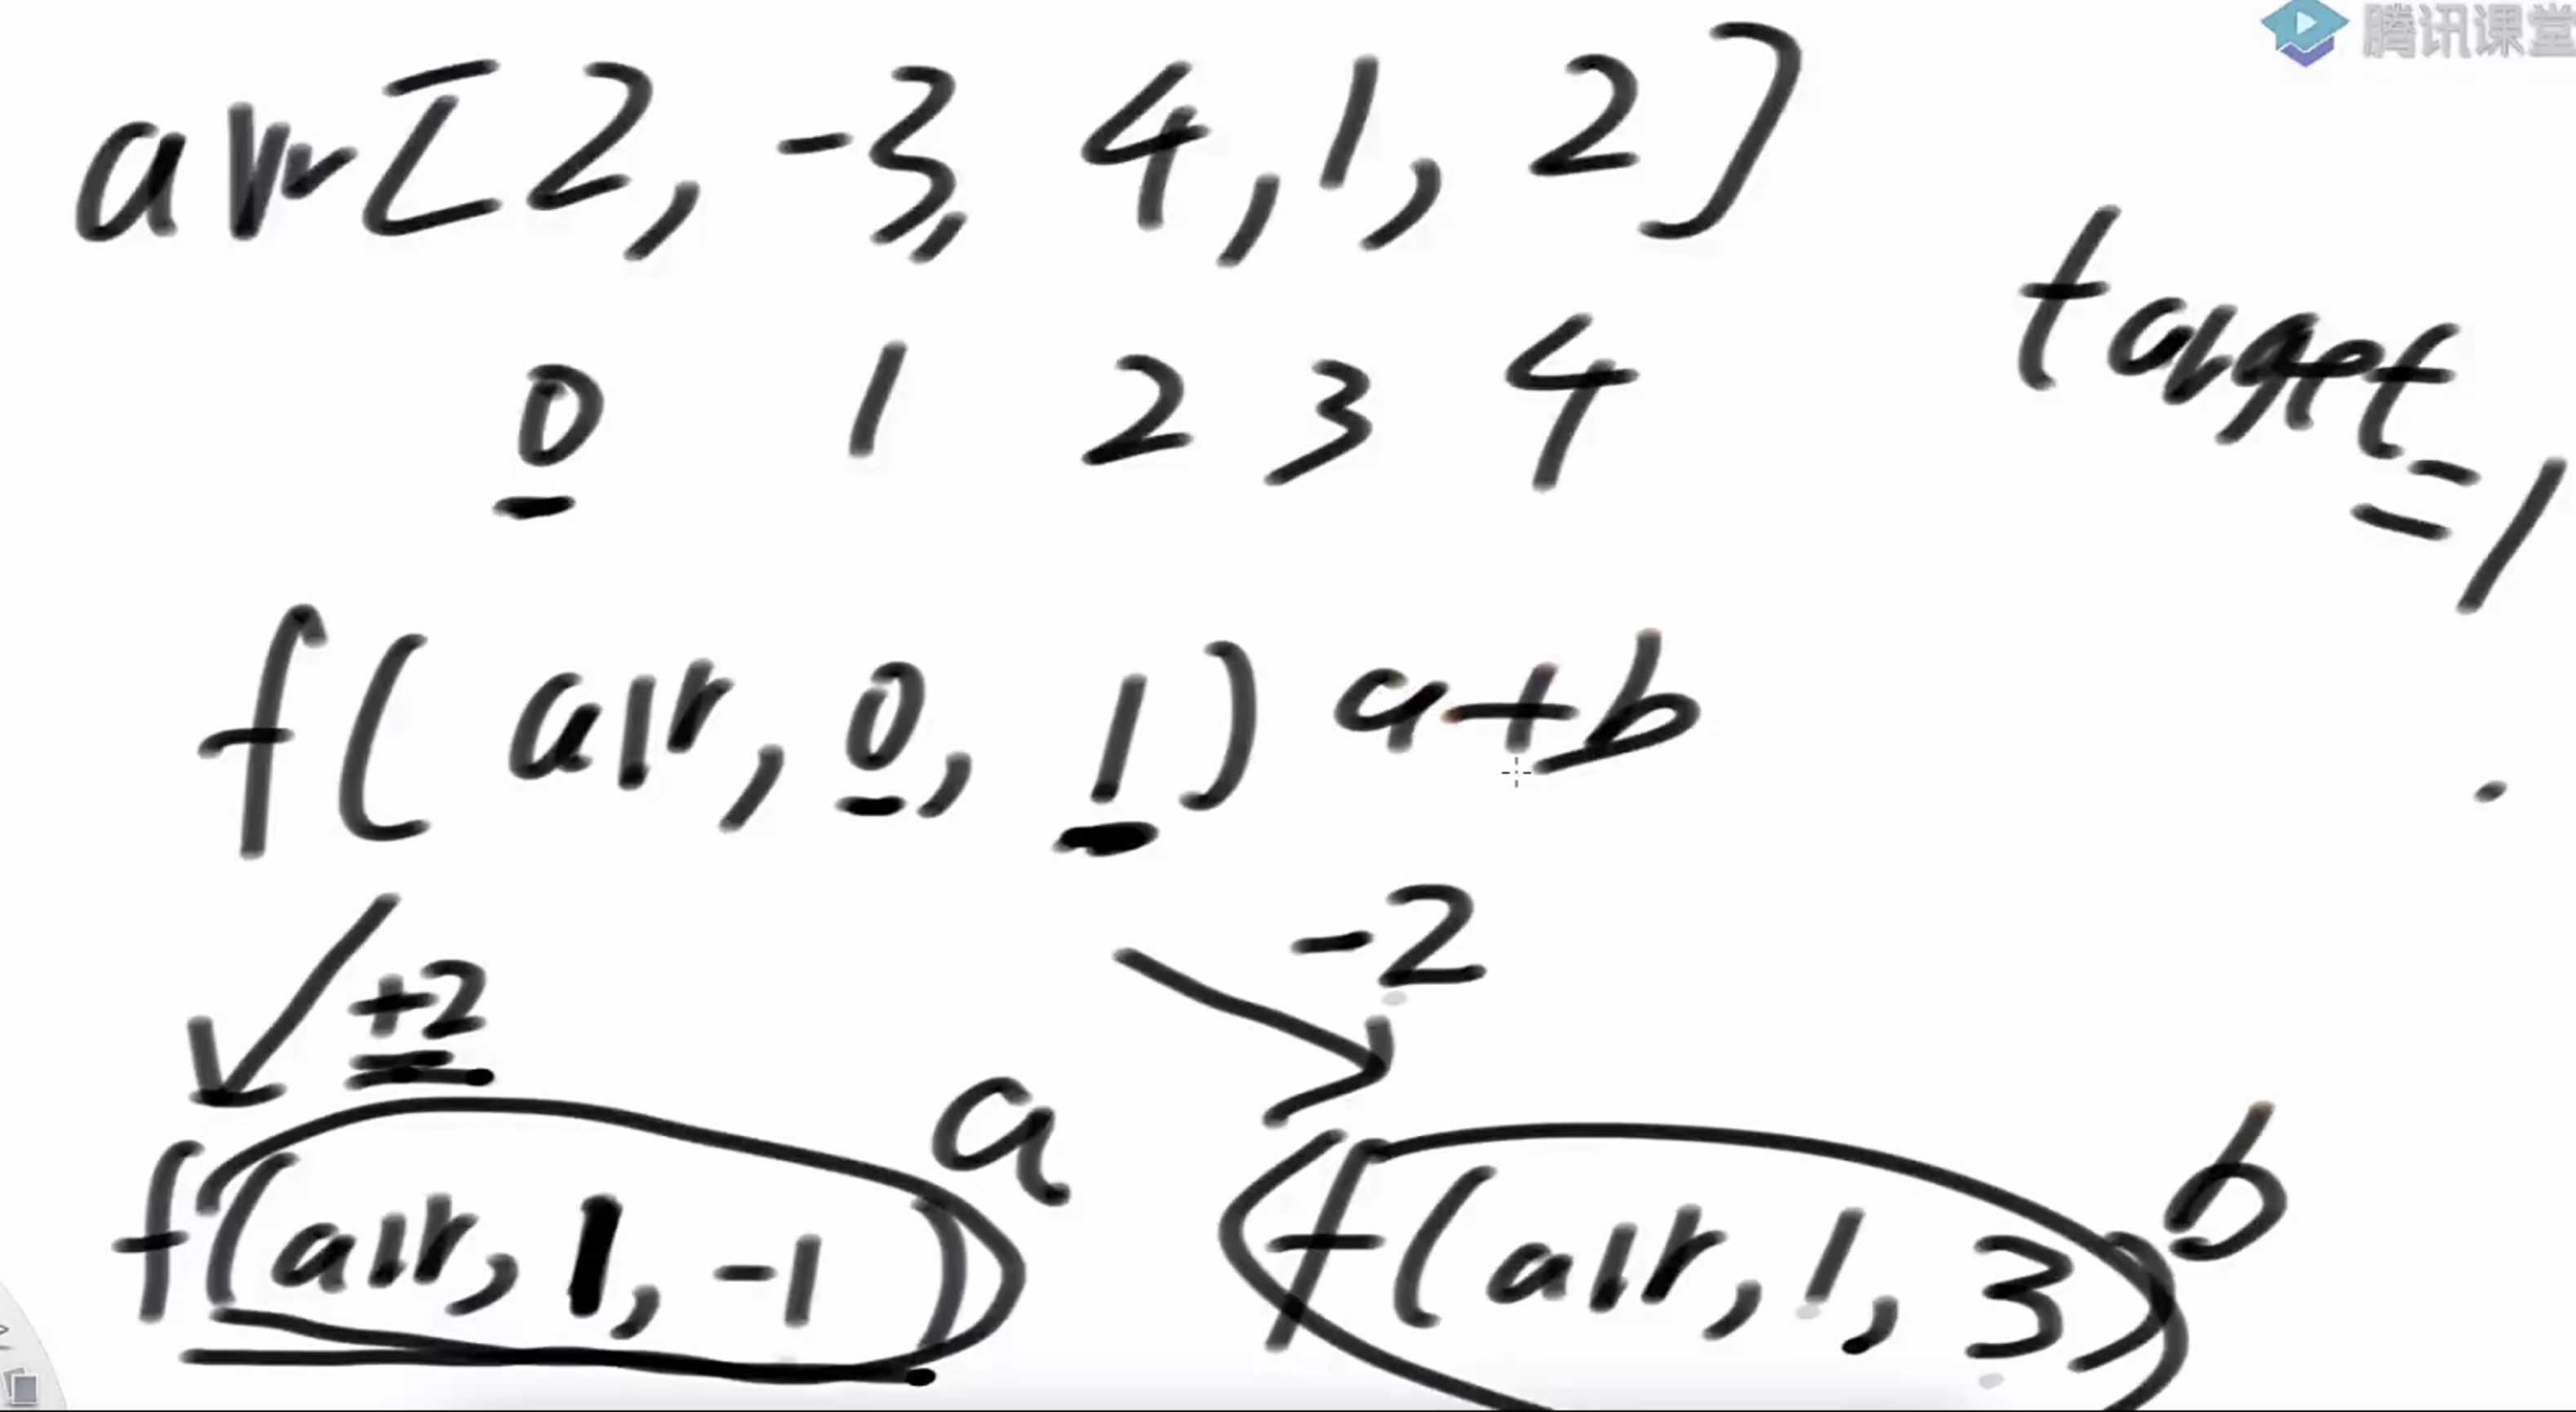 腾讯课堂
arr[2, -3, 4, 1, 2]
0 1 2 3 4
target
=1
f(arr, 0, 1) a+b
+2 -2
a b
f(arr, 1, -1) f(arr, 1, 3)